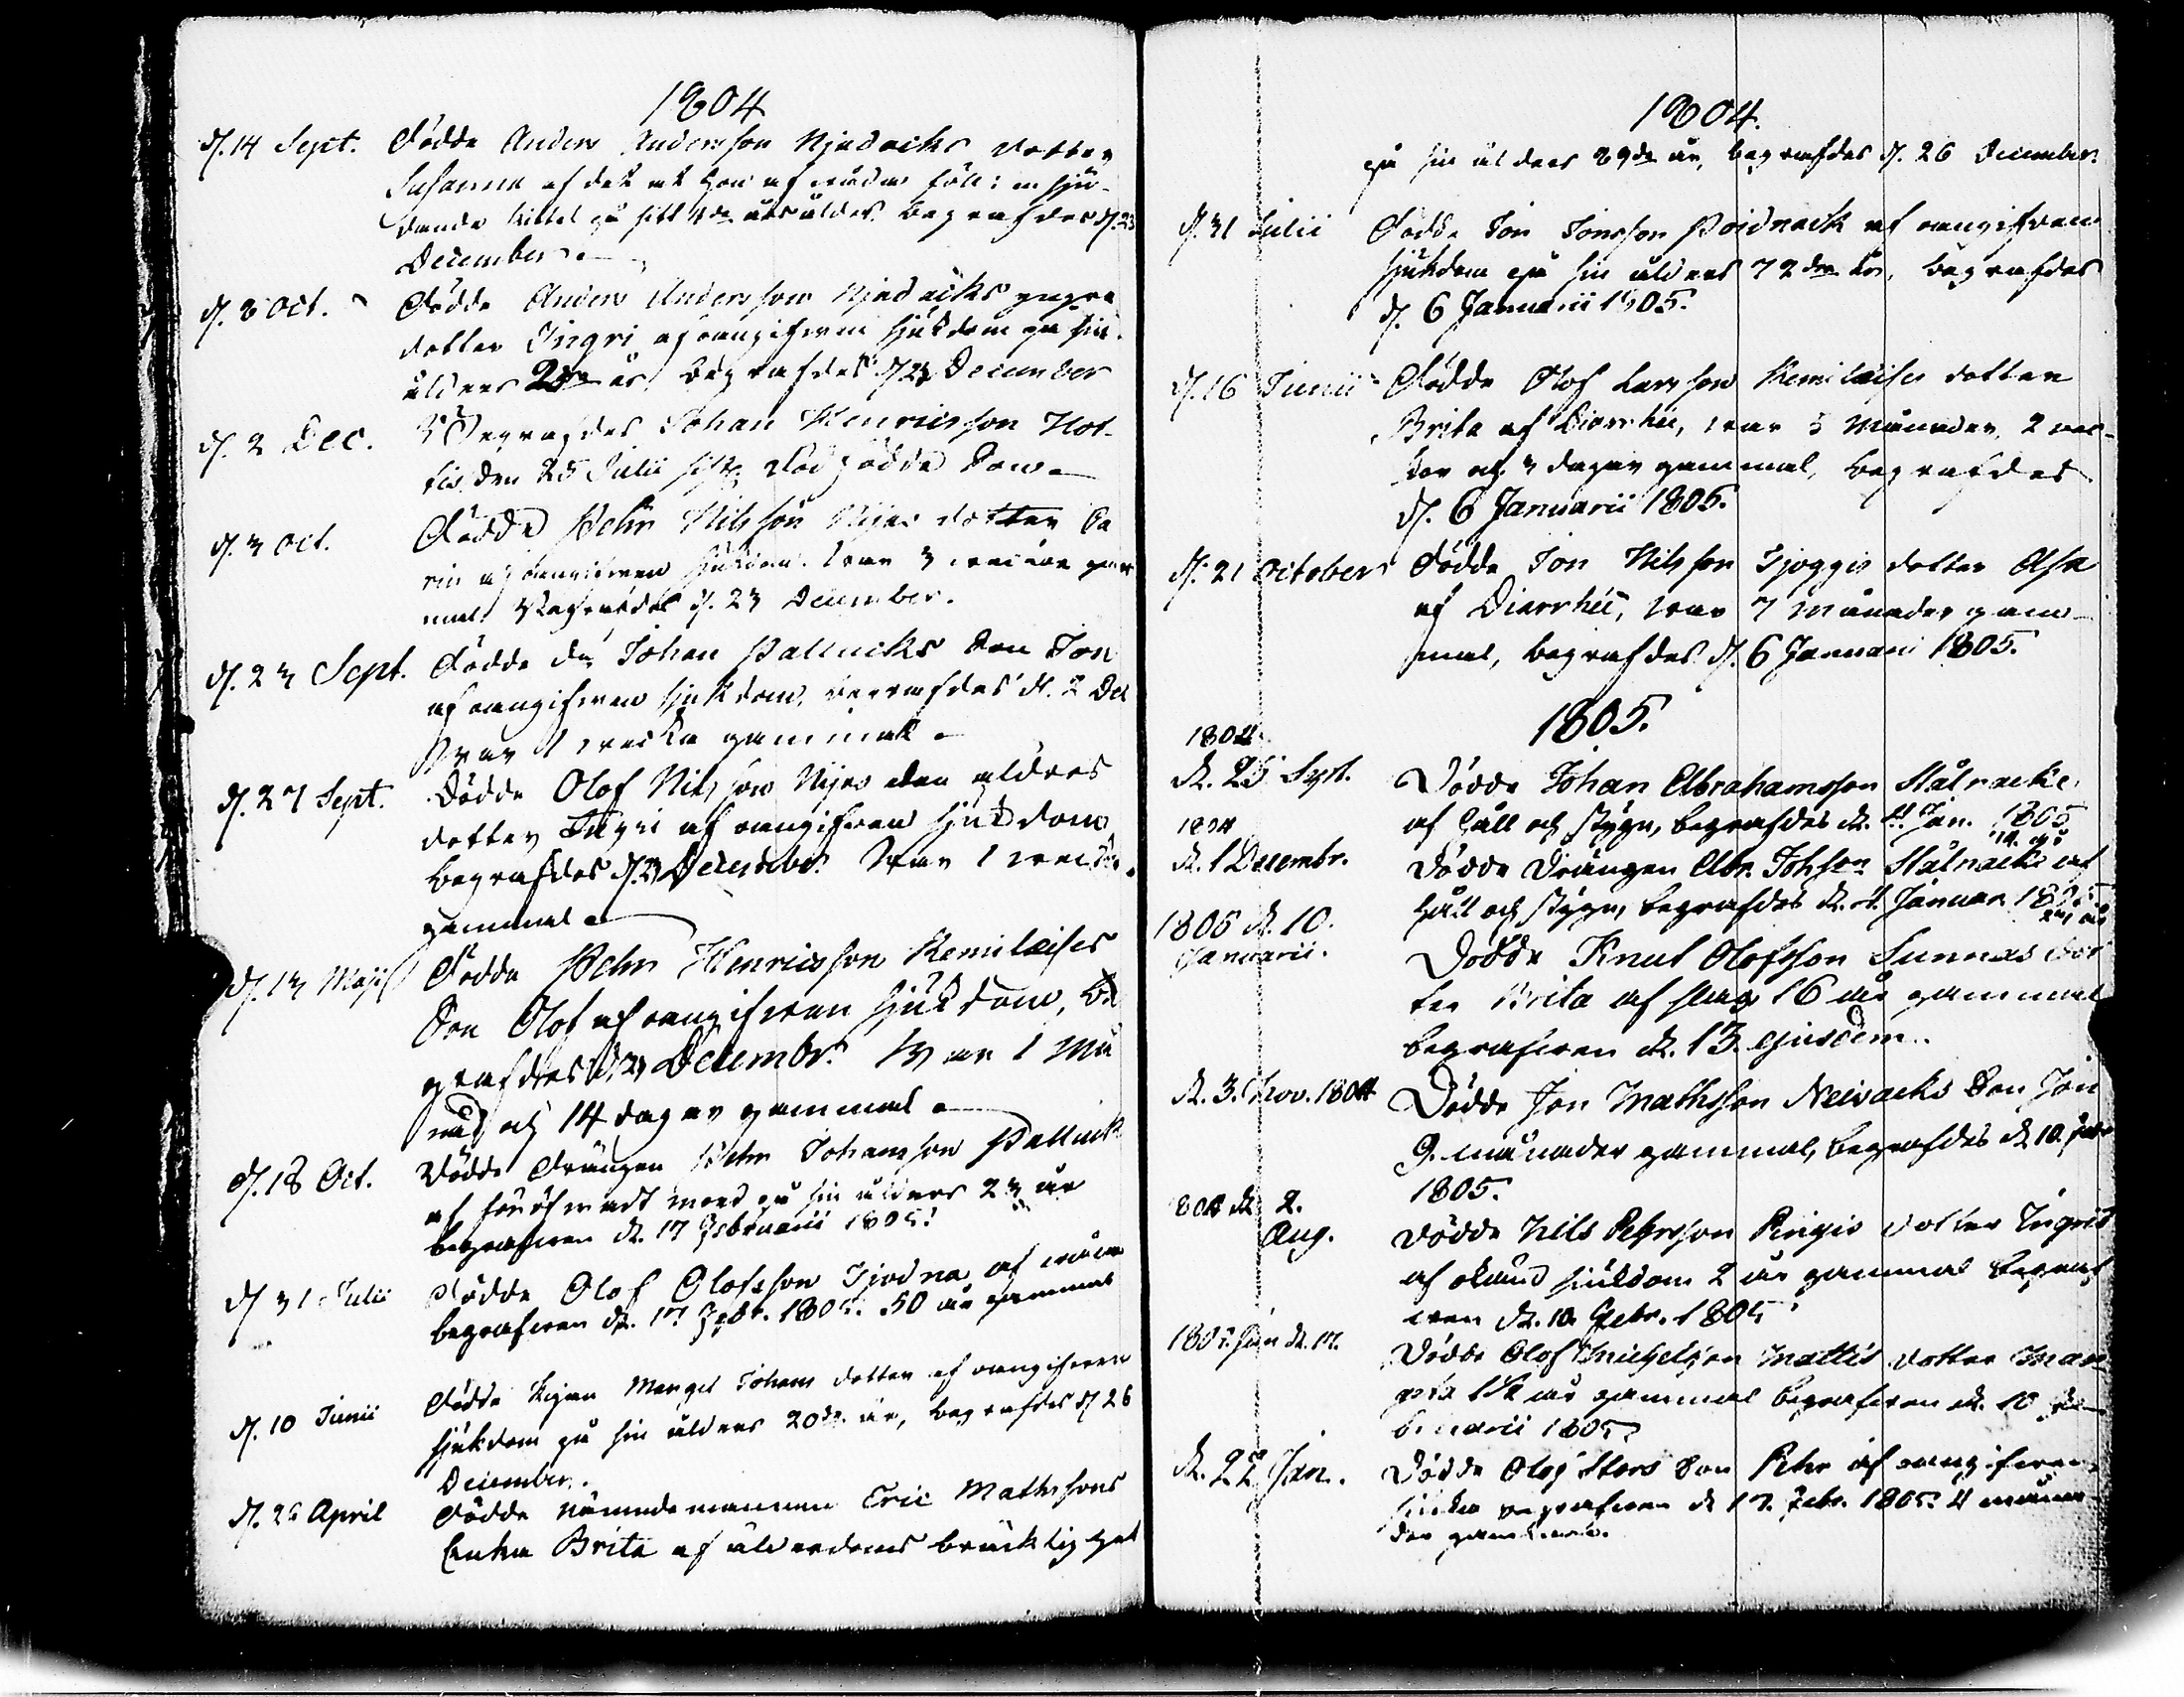 1804
d. 14 Sept. Dödde Anders Andersson Njedacks dotter
Susanna af det at hon af wåda föll i en sju-
dande kittel på sitt 4de års ålder. Begrafdes d. 23
December.
d. 8 Oct. Dödde Anders Andersson Njedacks yngre
dotter Ingri af oangifwen sjukdom på sin
ålders 2dra år, begrafdes d. 23 December
d. 2 Dec. Begrafdes Johan Henricsson Hot-
tis den 25 Julii sistl. dödfödde Son.
d. 3 Oct. Dödde Pehr Nilsson Nijas dotter Ca
rin af oangifwen sjukdom. War 3 weckor gam
mal. Begrafdes d. 23 December.
d. 23 Sept. Dödde Johan Pallucks Son Jon
af oangifwen sjukdom, begrafdes d. 2 Dec
War 1 wecka gammal.
d. 27 Sept. Dödde Olof Nilsson Nijas den äldres
dotter Ingri af oangifwen sjukdom
begrafdes d. 23 December. War 1 wecka
gammal.
d. 13 Maji Dödde Pehr Henricsson Kemiläises
Son Olof af oangifwen sjukdom, be
grafdes d. 23 Decembr. War 1 må
nad och 14 dagar gammal.
d. 18 Oct. Dödde Drängen Pehr Johansson Palluck
af föröfwadt mord på sin ålders 23 år
begrafwen d. 17 Februarii 1805.
d. 31 Julii Dödde Olof Olofsson Tjodna af wåda
begrafwen d. 17 Febr. 1805. 50 år gammal
d. 10 Junii Dödde Pigan Marget Johans dotter af oangifwen
sjukdom på sin ålders 20de år, begrafdes d. 26
December.
d. 26 April Dödde Nämndemannen Eric Mathssons
Enka Brita af ålderdoms bräcklighet
1804.
på sin ålders 89de år, begrafdes d. 26 December
d. 31 Julii Dödde Jon Jonsson Poidnack af oangifwen
sjukdom på sin ålders 72dra år, begrafdes
d. 6 Januarii 1805.
d. 16 Junii Dödde Olof Larsson Kemiläises dotter
Brita af Diarrhée, war 5 Månader, 2 wec-
kor och 3 dagar gammal, begrafdes
d. 6 Januarii 1805.
d. 21 October Dödde Jon Nilsson Tjoggis dotter Elsa
af Diarrhée, war 7 månader gam-
mal, begrafdes d. 6 Januarii 1805.
1805.
1804
d. 25 Sept. Dödde Johan Abrahamsson Stålnacke
af håll och styng, begrafdes d. 4 Jan. 1805
1804
d. 1 Decembr. Dödde Drängen Abr. Johson Stålnacke af
håll och styng, begrafdes d. 4 Januar. 1805
1805 d. 10.
Januarii. Dödde Knut Olofsson Sunnas dot
ter Brita af slag 16 år gammal
begrafwen d. 13 ejusdem.
d. 3. Nov. 1804 Dödde Jon Mathsson Neivacks Son Jon
9. månader gammal, begrafdes d. 10. Febr
1805.
1804 d. 2.
Aug. Dödde Nils Pehrsson Pingis dotter Ingrid
af okänd sjukdom 2 år gammal begraf
wen d. 10. Febr. 1805
1805. Jan d. 17. Dödde Olof Michelson Mattis dotter Mar
greta 1½ år gammal begrafwen d. 10 Fe-
bruarii 1805.
d. 22 Jan. Dödde Olof Stors Son Pehr af oangifwen
sjuka begrafwen d. 17. Febr. 1805. 4 måna
der gammal.